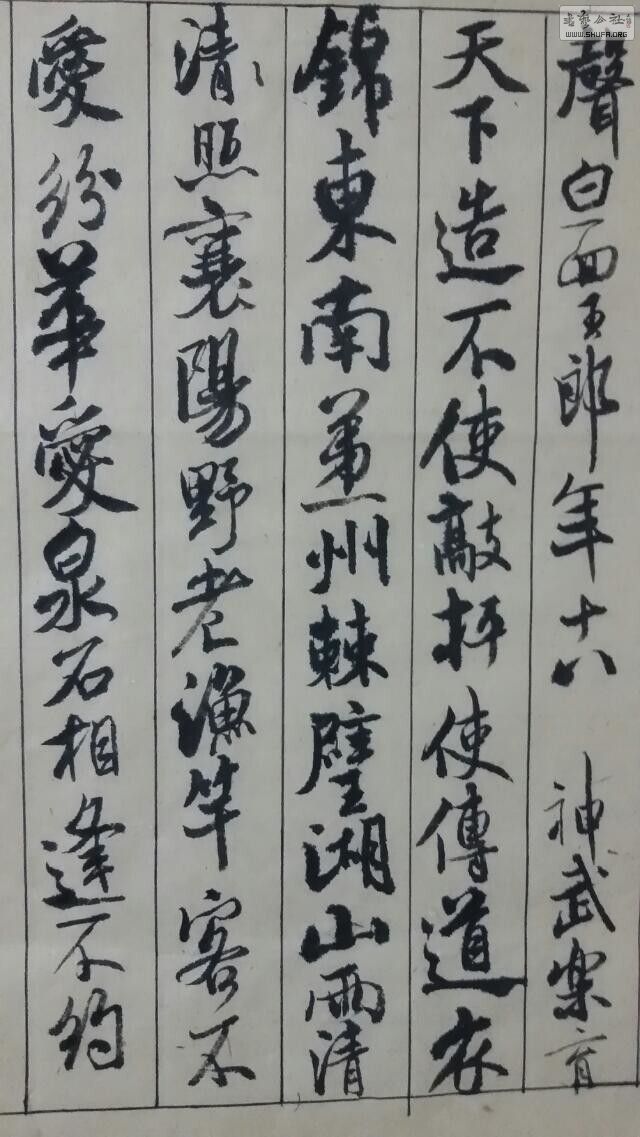 書藝公社
WWW.SHUFA.ORG
聲白面王郎年十八 神武樂育
天下造不使敲抨使傳道衣
錦東南第一州棘璧湖山兩清
清照襄陽野老漁竿客不
愛紛華愛泉石相逢不約